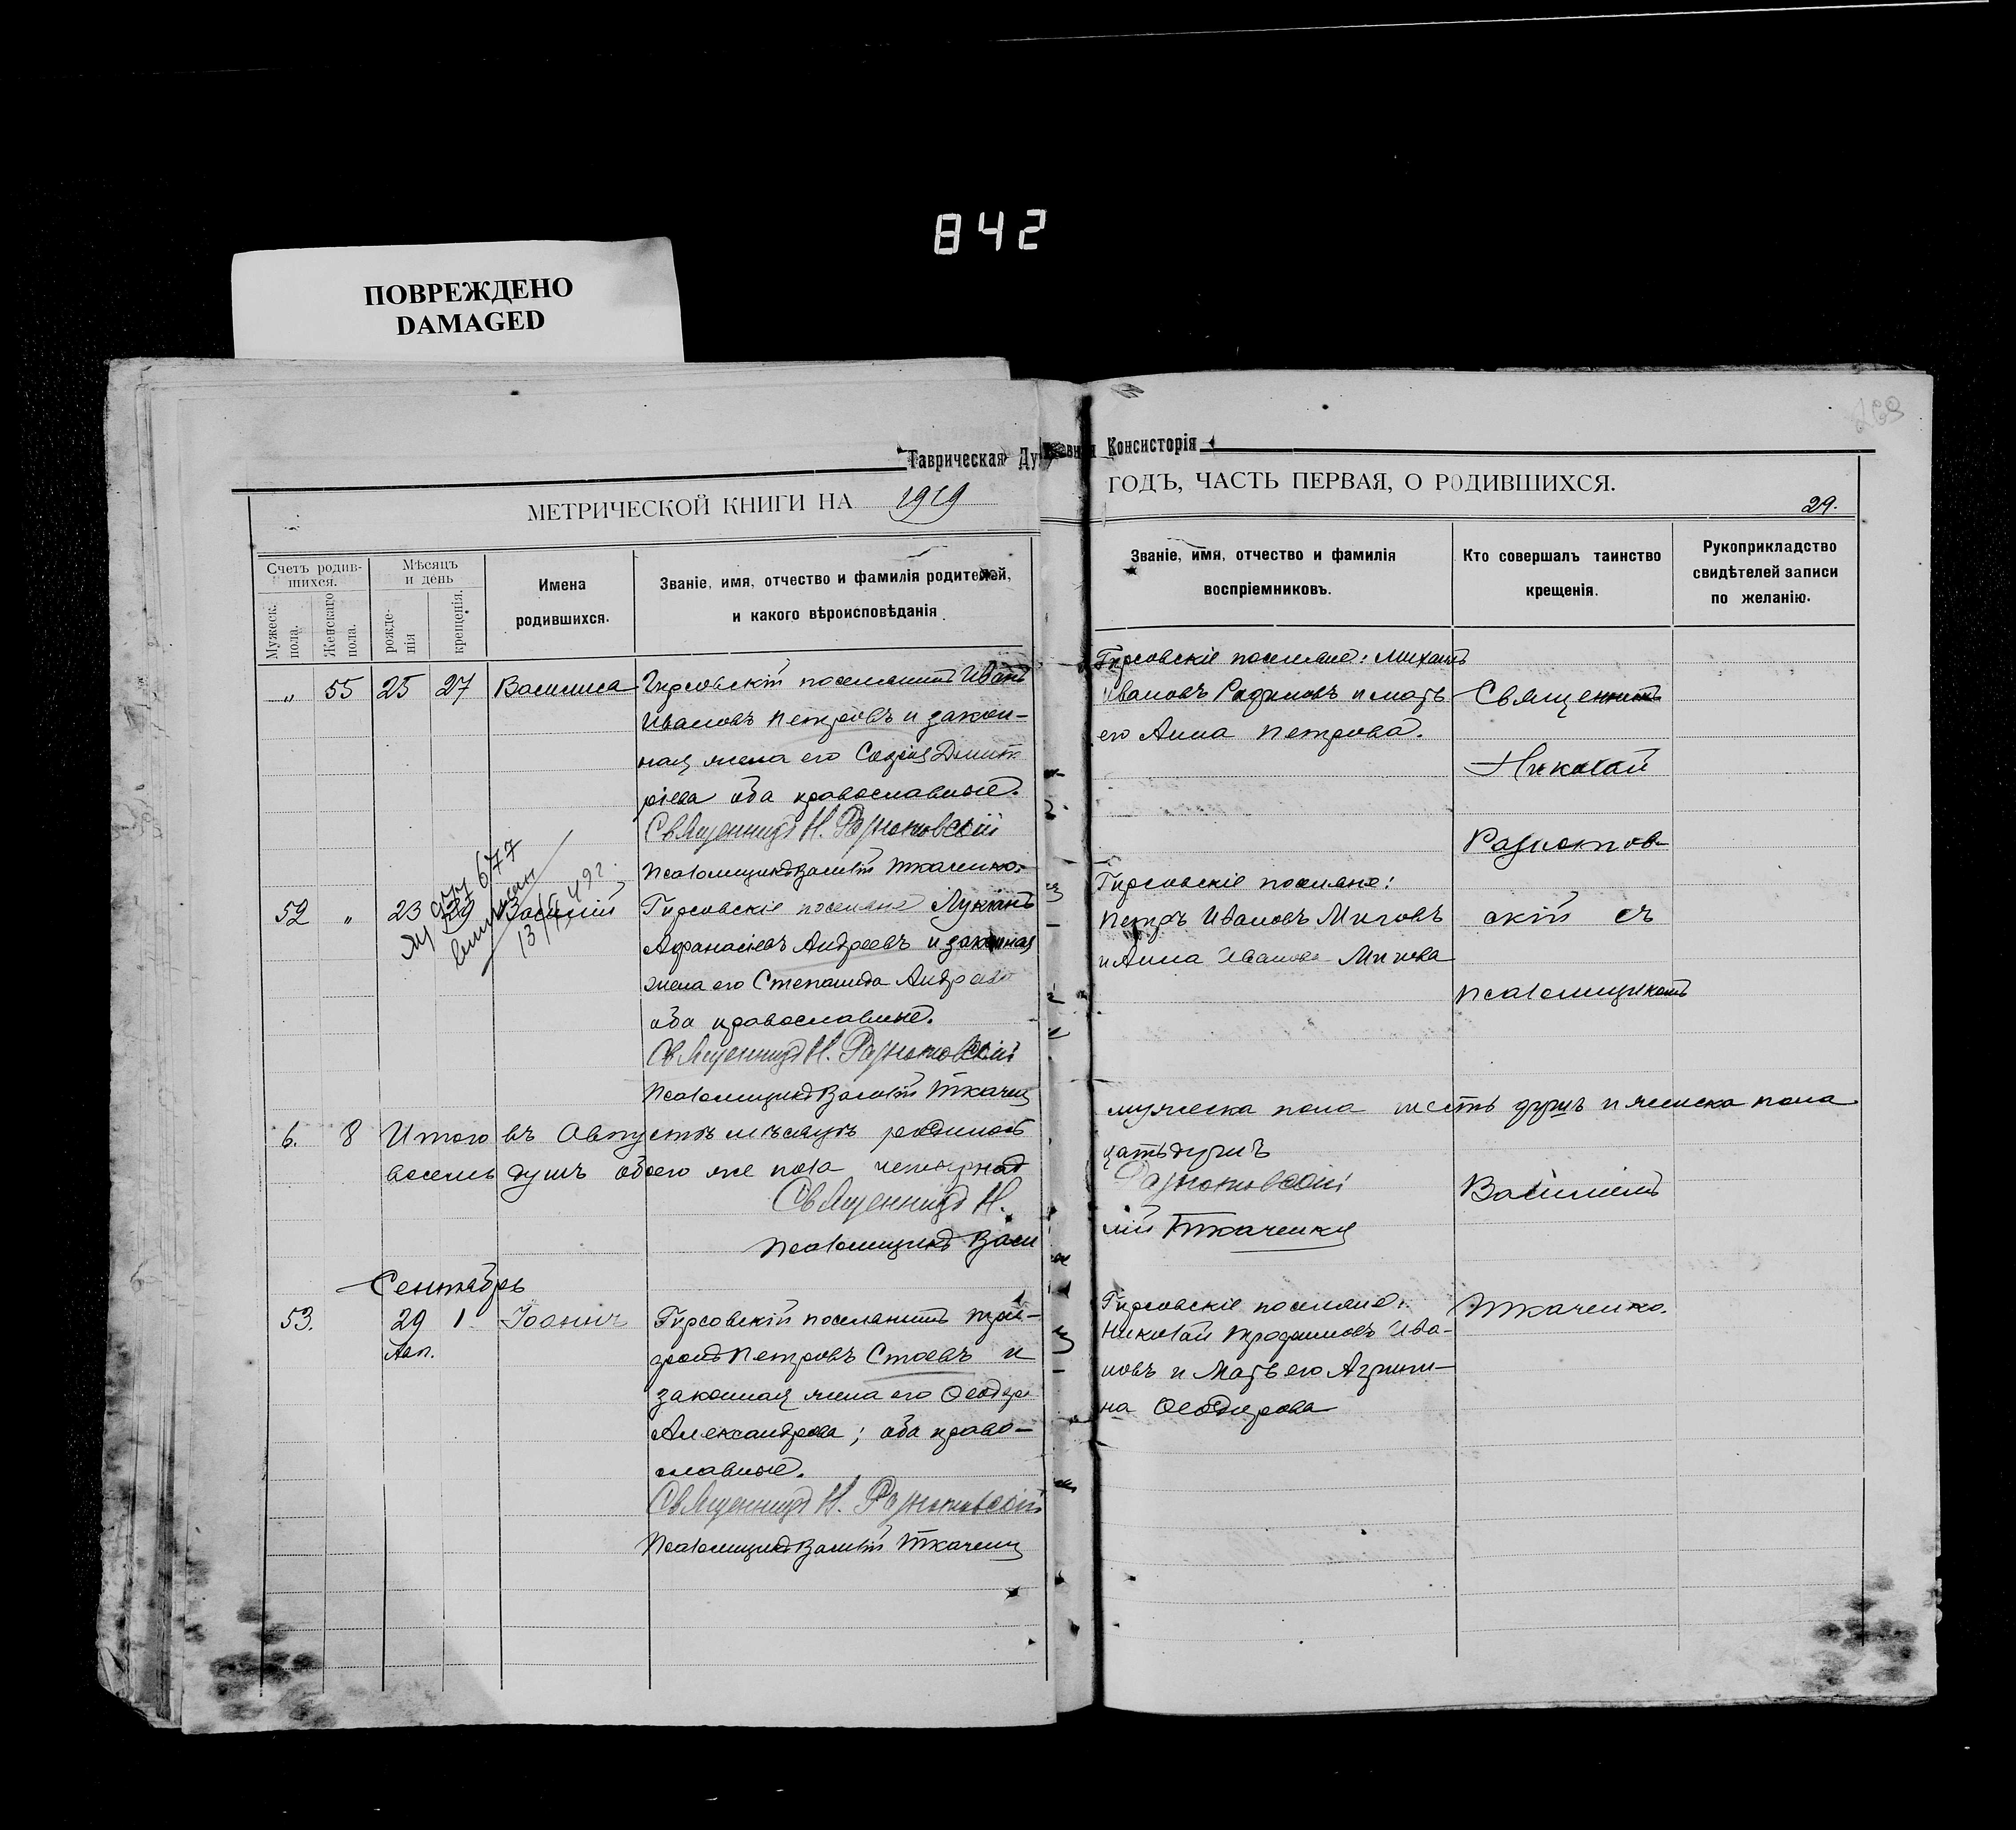 842
ПОВРЕЖДЕНО
DAMAGED
Таврическая Духовная Консисторія
МЕТРИЧЕСКОЙ КНИГИ НА 1919 ГОДЪ, ЧАСТЬ ПЕРВАЯ, О РОДИВШИХСЯ.
29.
Счетъ родив-
шихся.
Мужеск. пола.
Женскаго пола.
Мѣсяцъ
и день
рожде-
нія
крещенія.
Имена
родившихся.
Званіе, имя, отчество и фамилія родителей,
и какого вѣроисповѣданія
Званіе, имя, отчество и фамилія
воспріемниковъ.
Кто совершалъ таинство
крещенія.
Рукоприкладство
свидѣтелей записи
по желанію.
„ 55 25 27 Василиса
Гирсовскій поселянинъ Иванъ
Ивановъ Петровъ и закон-
ная жена его Софія Димит
ріева оба православные.
Священникъ Н. Разнотовскій
Псаломщикъ Василій Ткаченко
Гирсовскіе поселяне: Михаилъ
Ивановъ и мать
его Анна Петрова.
Священникъ
Николай
Разнотов-
скій съ
псаломщикомъ
Василіемъ
Ткаченко.
52 „ 23 29 Василій
677
13/
Гирсовскіе поселяне Лукіанъ
Афанасіевъ Андреевъ и законная
жена его Степанида
оба православные.
Священникъ Н. Разнотовскій
Псаломщикъ Василій Ткаченко
Гирсовскіе поселяне:
Петръ Ивановъ Миговъ
и Анна Иванова Мигова
6. 8 Итого въ Августѣ мѣсяцѣ родилось мужеска пола шесть душъ и женска пола
восемь душъ обоего же пола четырнад цать душъ
Священникъ Н. Разнотовскій
Псаломщикъ Васи лій Ткаченко
Сентябрь
53. 29 1 Іоаннъ
Авг.
Гирсовскій поселянинъ Три-
фонъ Петровъ Стоевъ и
законная жена его
Александрова; оба право-
славные.
Священникъ Н. Разнотовскій
Псаломщикъ Василій Ткаченко
Гирсовскіе поселяне:
Николай Трофимовъ Ива-
новъ и Мать его Агрипи-
на Ѳеодорова